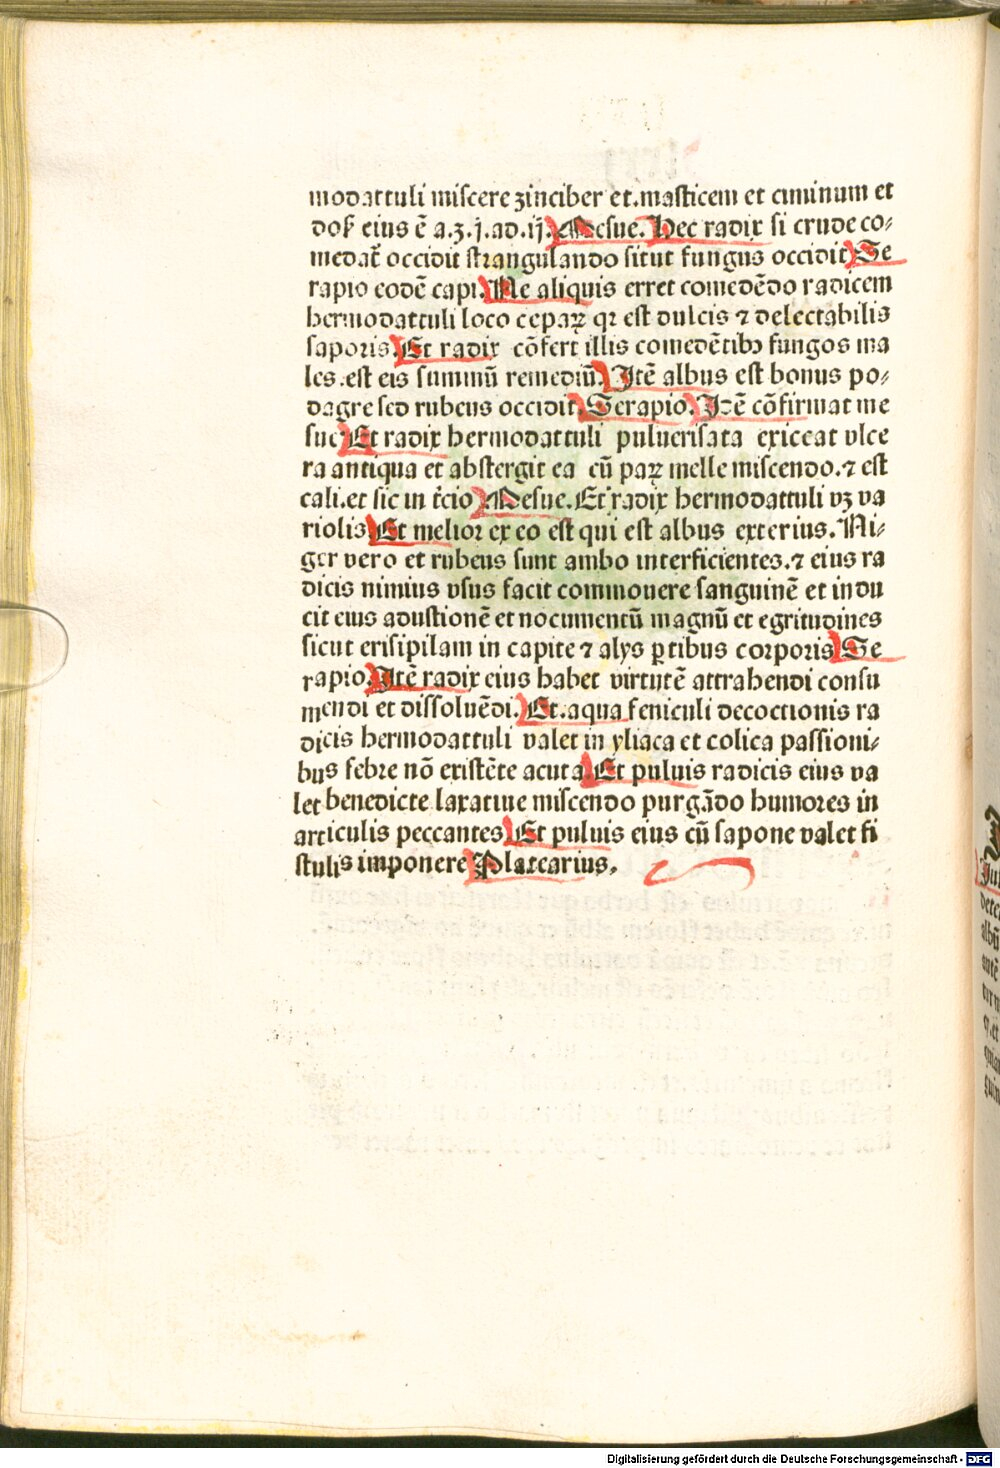 modattuli miscere zinciber et.masticem et ciminum et
dos̄ eius ē a.ʒ.j.ad.ij. Mesue. Hec radix si crude co⸗
medat̄ occidit strangulando sicut fungus occidit Se
rapio eodē capi. Ne aliquis erret comedēdo radicem
hermodattuli loco cepaꝝ qꝛ est dulcis ⁊ delectabilis
saporis. Et radix cōfert illis comedētibꝰ fungos ma
les.est eis summū remediū. Itē albus est bonus po⸗
dagre sed rubeus occidit. Serapio. Itē cōfirmat me
sue. Et radix hermodattuli puluerisata exiccat vlce
ra antiqua et abstergit ea cū paꝝ melle miscendo.⁊ est
cali.et sic in t̄cio Mesue. Et radix hermodattuli vꝫ va
riolis. Et melior ex eo est qui est albus exterius. Ni⸗
ger vero et rubeus sunt ambo interficientes.⁊ eius ra
dicis nimius vsus facit commouere sanguinē et indu
cit eius adustionē et nocumentū magnū et egritudines
sicut erisipilam in capite ⁊ alys ꝑtibus corporis Se
rapio. Itē radix eius habet virtutē attrahendi consu
mendi et dissoluēdi. Et.aqua feniculi decoctionis ra
dicis hermodattuli valet in yliaca et colica passioni⸗
bus febre nō existēte acuta. Et puluis radicis eius va
let benedicte laxatiue miscendo purgādo humores in
articulis peccantes Et puluis eius cū sapone valet fi
stulis imponere Platearius.
Digitalisierung gefördert durch die Deutsche Forschungsgemeinschaft - DFG